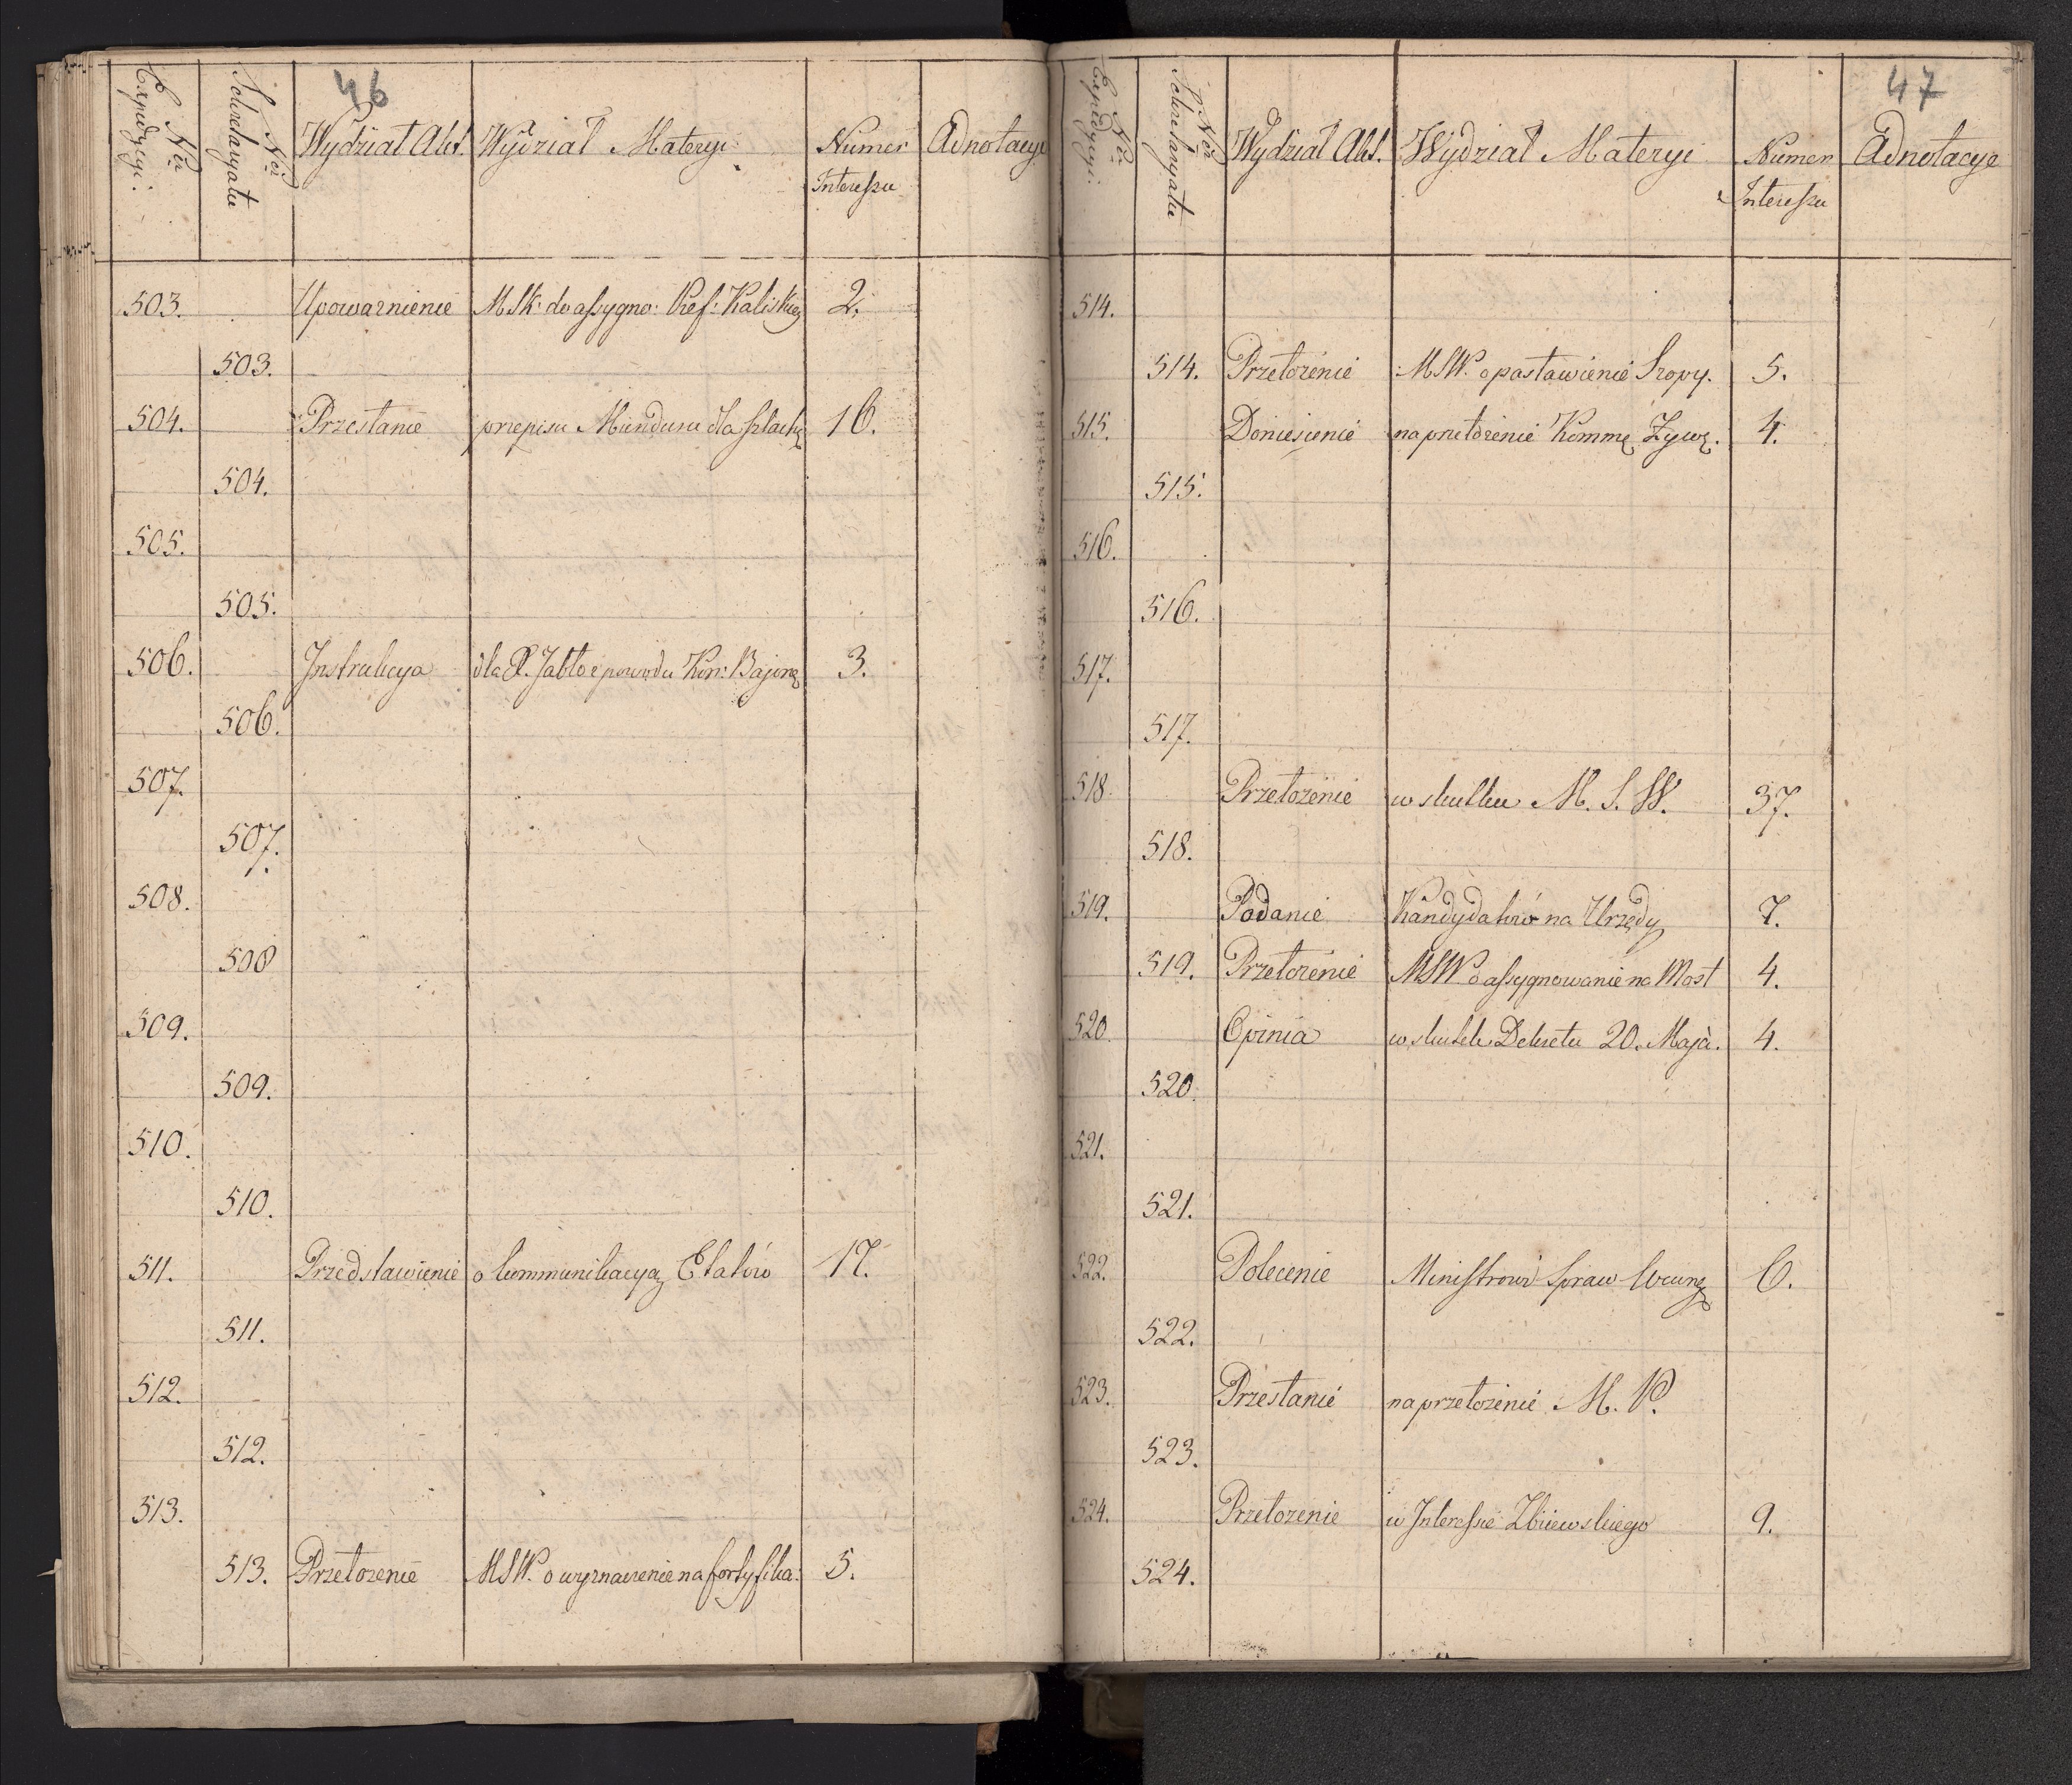 46
Nro Expedycyi: Nro Sekretaryatu Wydział Akt. Wydział Materyi Numer Interessu Adnotacye
503. Upoważnienie MSk: do assygno: Pref: Kaliskiey 2.
503.
504. Przesłanie przepisu Munduru dla szlachty 16.
504.
505.
505.
506. Instrukcya dla P. Jabło z powodu Kon: Bajon 3.
506.
507.
507.
508.
508
509.
509.
510.
510.
511. Przedstawienie o kommunikacyą Etatów 17.
511.
512.
512.
513.
513. Przełożenie MSW. o wyznaczenie na fortyfika: 5.
47
Nro Expedycyi: Nro Sekretaryatu Wydział Akt. Wydział Materyi Numer Interessu Adnotacye
514.
514. Przełożenie MSW. o postawienie Szopy. 5.
515. Doniesienie na przełożenie Kommę Żywę. 4.
515.
516.
516.
517.
517.
518. Przełożenie w skutku M. S. W. 37.
518.
519. Podanie Kandydatów na Urzędy 7.
519. Przełożenie MSW. o assygnowanie na Most 4.
520. Opinia w skutek Dekretu 20. Maja. 4.
520.
521.
521.
522. Polecenie Ministrowi Spraw Wewnę 6.
522.
523. Przesłanie na przełożenie M. P.
523.
524. Przełożenie w Interessie Zbiiewskiego 9.
524.